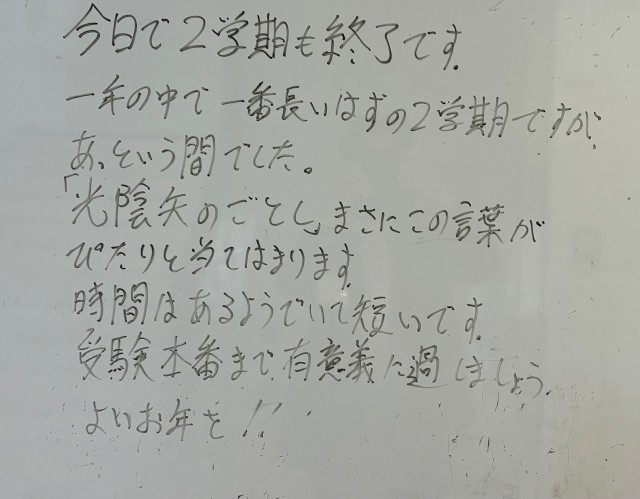 今日で2学期も終了です.
一年の中で一番長いはずの2学期ですが、
あっという間でした。
「光陰矢のごとし」まさにこの言葉が
ぴたりと当てはまります.
時間はあるようでいて短いです.
受験本番まで、有意義に過しましょう.
よいお年を!!